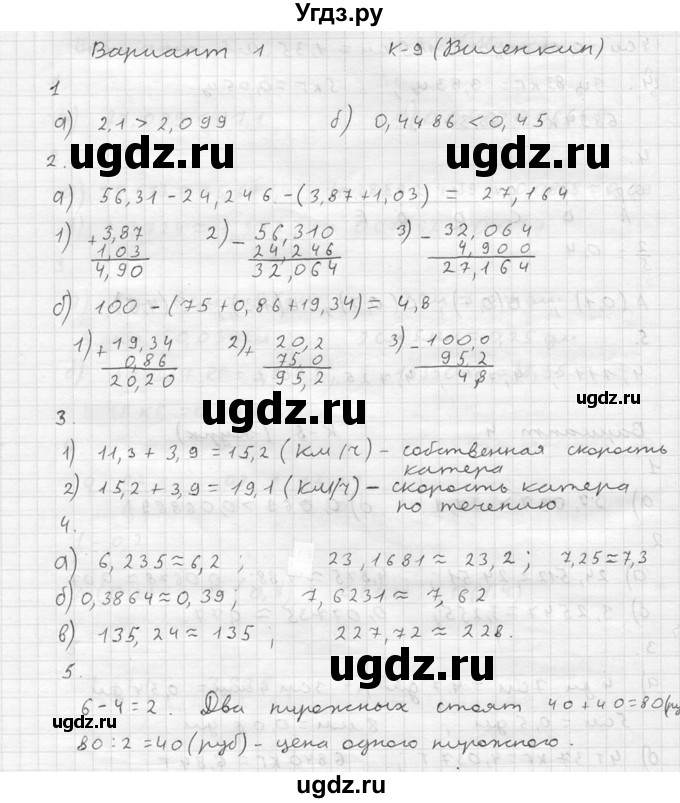 Угдз.ру
Вариант 1 К-9 (Виленкин)
1
а) 2,1 > 2,099 б) 0,4486 < 0,45
ugdz.ru ugdz.ru
2.
а) 56,31 - 24,246 - (3,87 + 1,03) = 27,164
1) + 3,87 2) - 56,310 3) - 32,064
1,03 24,246 4,900
4,90 32,064 27,164
б) 100 - (75 + 0,86 + 19,34) = 4,8
1) + 19,34 2) + 20,2 3) - 100,0
0,86 75,0 95,2
20,20 95,2 4,8
ugdz.ru
3.
1) 11,3 + 3,9 = 15,2 (км/ч) - собственная скорость
катера
2) 15,2 + 3,9 = 19,1 (км/ч) - скорость катера
по течению
ugdz.ru ugdz.ru
4.
а) 6,235 ≈ 6,2 ; 23,1681 ≈ 23,2 ; 7,25 ≈ 7,3
б) 0,3864 ≈ 0,39 ; 7,6231 ≈ 7,62
в) 135,24 ≈ 135 ; 227,72 ≈ 228.
ugdz.ru
5.
6 - 4 = 2. Два пирожных стоят 40 + 40 = 80 (ру
80 : 2 = 40 (руб) - цена одного пирожного.
ugdz.ru ugdz.ru